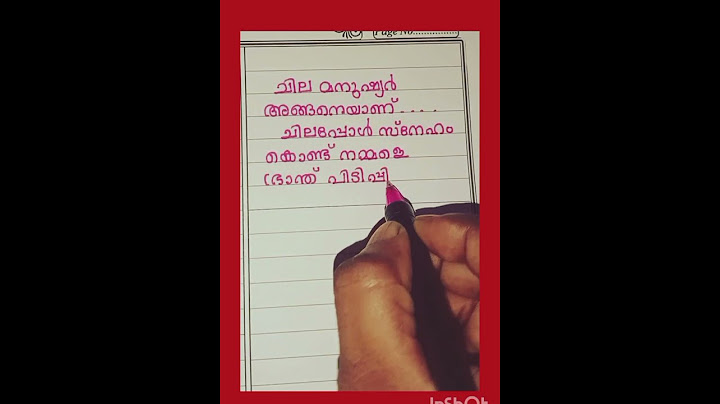 Page No.................
ചില മനുഷ്യർ
അങ്ങനെയാണ്....
ചിലപ്പോൾ സ്നേഹം
കൊണ്ട് നമ്മളെ
ഭ്രാന്ത് പിടിപ്പി
InShOt